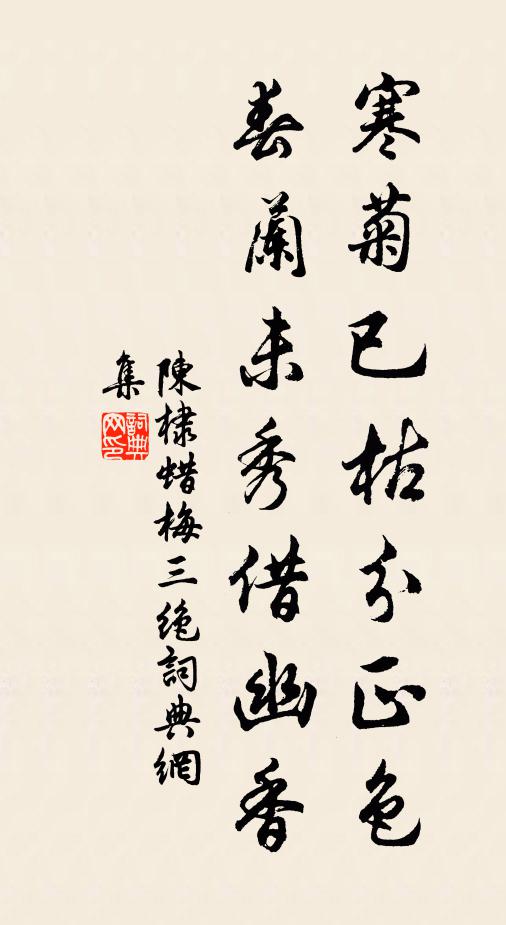 寒菊已枯分正色
春蘭未秀借幽香
陳棣蜡梅三絶詞典網
集
詞典
网印